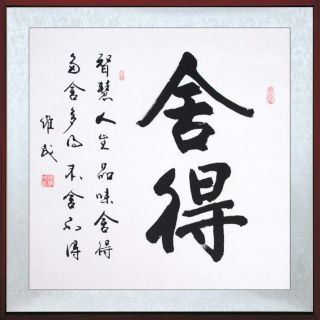 舍得
智慧人生品味舍得
多舍多得不舍不得